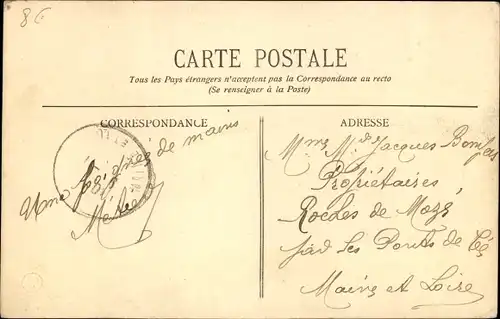 86
CARTE POSTALE
Tous les Pays étrangers n'acceptent pas la Correspondance au recto
(Se renseigner à la Poste)
CORRESPONDANCE
ADRESSE
Une poignées de mains
Mme Jacques
Propriétaires
Roches de
par les Ponts de Cé
Maine et Loire